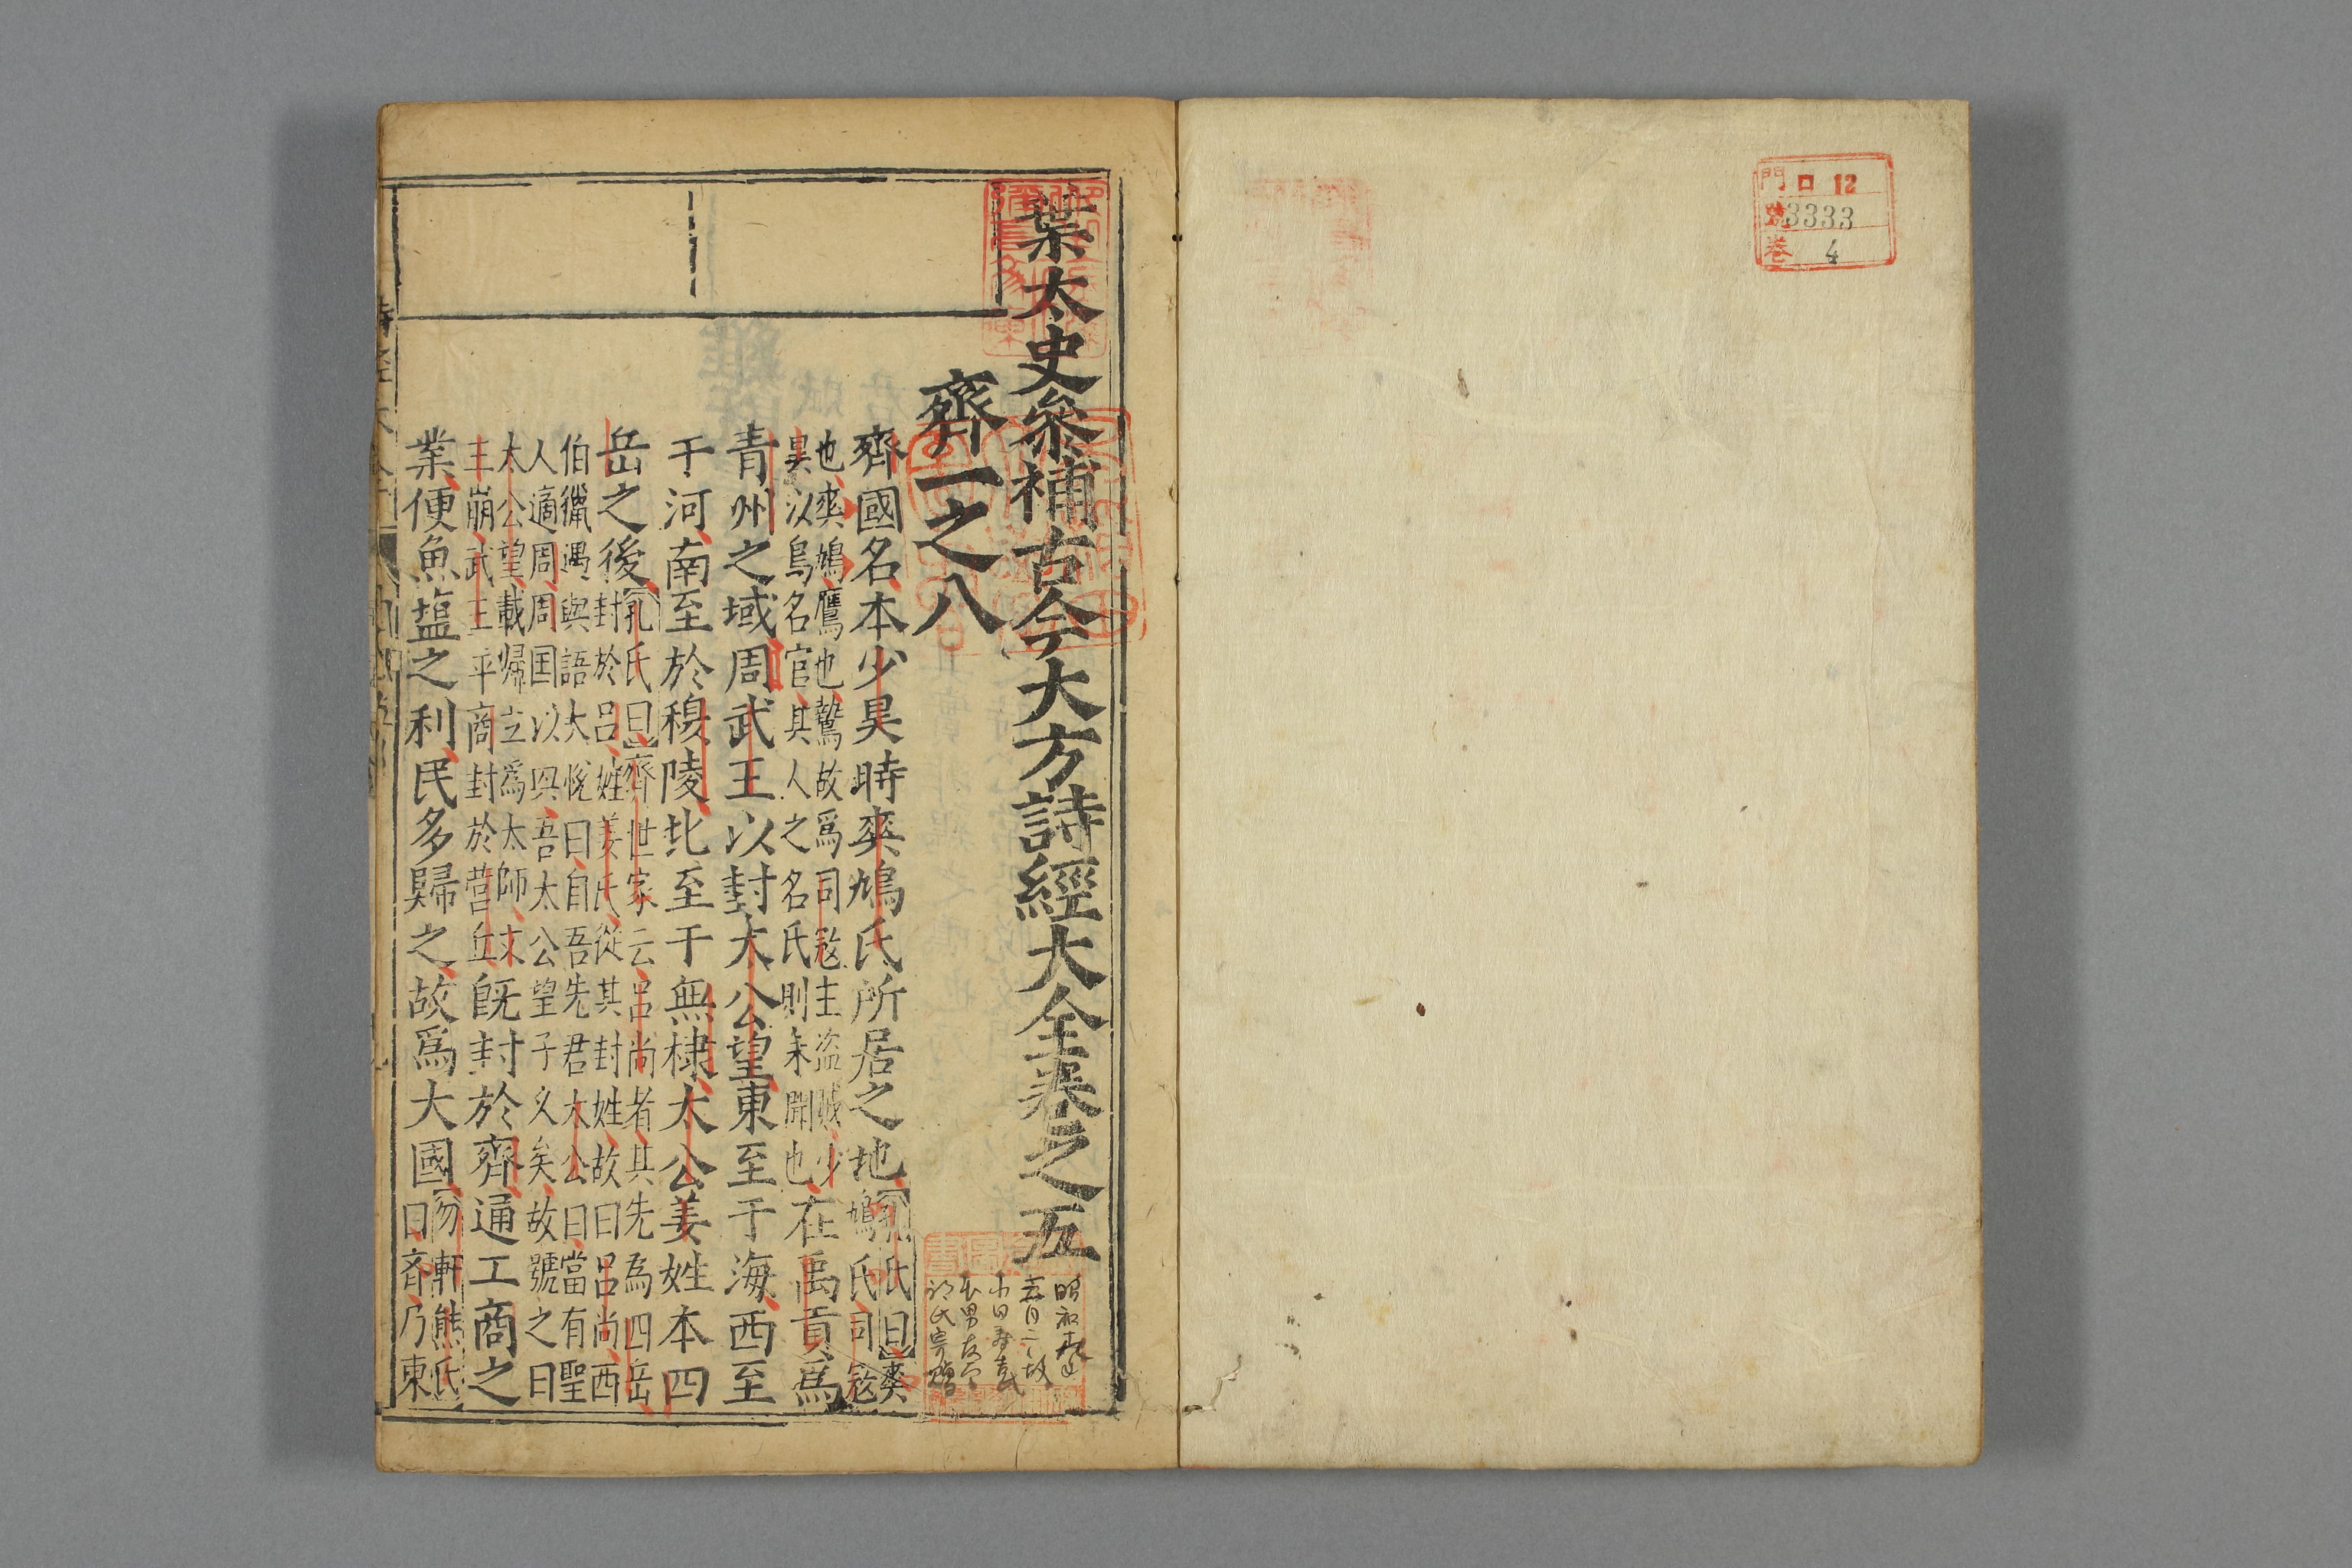 門 口 12
號 3333
巻 4
葉太史參補古今大方詩經大全卷之五
齊一之八
齊國名本少昊時爽鳩氏所居之地孔氏曰爽
鳩氏司寇
也爽鳩鷹也鷙故爲司寇主盗賊少
昊以鳥名官其人之名氏則未聞也在禹貢爲
青州之域周武王以封太公望東至于海西至
于河南至於穆陵北至于無棣太公姜姓本四
岳之後孔氏曰齊世家云呂尚者其先為四岳
封於呂姓姜氏從其封姓故曰呂尚西
伯獵遇與語大悅曰自吾先君太公曰當有聖
人適周周国以興吾太公望子久矣故號之曰
太公望載歸立爲太師文
王崩武王平商封於營丘既封於齊通工商之
業便魚塩之利民多歸之故爲大國勿軒熊氏
曰齐乃東
氏寄贈